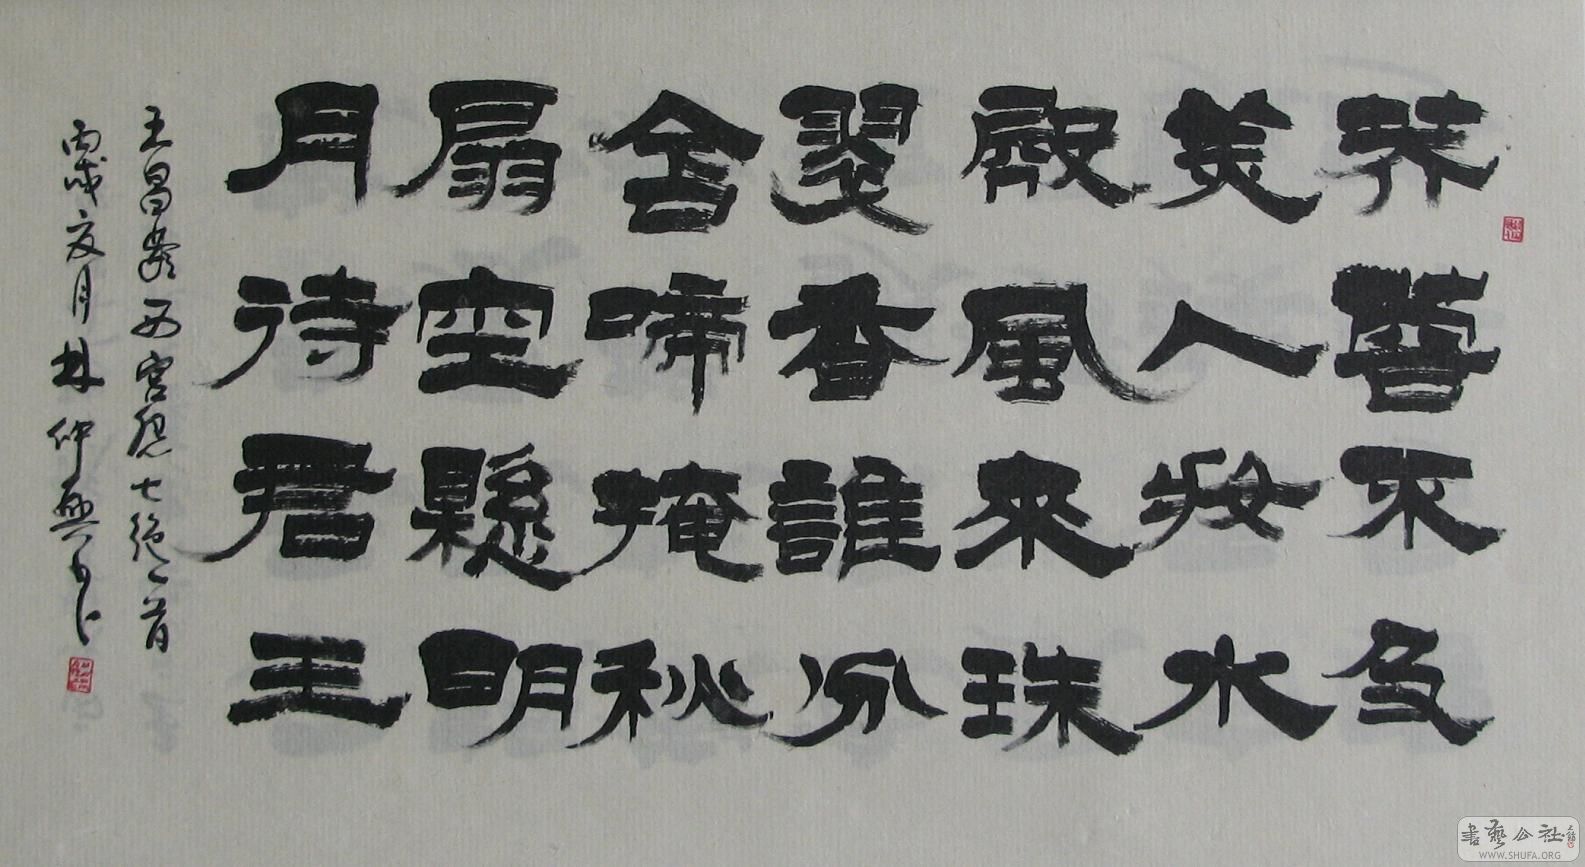 芙蓉不及
美人妝水
殿風來珠
翠香誰分
含啼掩秋
扇空懸明
月待君王
王昌齡西宮怨七絕一首
丙戌夏月林仲興书
書藝公社
WWW.SHUFA.ORG